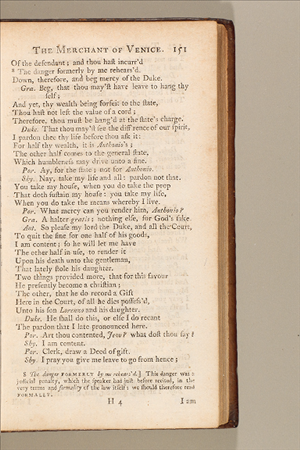 THE MERCHANT OF VENICE. 151
Of the defendant; and thou haſt incurr'd
⁸ The danger formerly by me rehears'd.
Down, therefore, and beg mercy of the Duke.
Gra. Beg, that thou may'ſt have leave to hang thy
ſelf;
And yet, thy wealth being forfeit to the ſtate,
Thou haſt not left the value of a cord;
Therefore, thou muſt be hang'd at the ſtate's charge.
Duke. That thou may'ſt ſee the diff'rence of our ſpirit,
I pardon thee thy life before thou aſk it:
For half thy wealth, it is Anthonio's;
The other half comes to the general ſtate,
Which humbleneſs may drive unto a fine.
Por. Ay, for the ſtate; not for Anthonio.
Shy. Nay, take my life and all: pardon not that.
You take my houſe, when you do take the prop
That doth ſuſtain my houſe: you take my life,
When you do take the means whereby I live.
Por. What mercy can you render him, Anthonio?
Gra. A halter gratis; nothing elſe, for God's ſake.
Ant. So pleaſe my lord the Duke, and all the Court,
To quit the fine for one half of his goods,
I am content; ſo he will let me have
The other half in uſe, to render it
Upon his death unto the gentleman,
That lately ſtole his daughter.
Two things provided more, that for this favour
He preſently become a chriſtian;
The other, that he do record a Gift
Here in the Court, of all he dies poſſeſs'd,
Unto his ſon Lorenzo and his daughter.
Duke. He ſhall do this, or elſe I do recant
The pardon that I late pronounced here.
Por. Art thou contented, Jew? what doſt thou ſay?
Shy. I am content.
Por. Clerk, draw a Deed of gift.
Shy. I pray you give me leave to go from hence;
8 The danger FORMERLY by me rehears'd.] This danger was a
judicial penalty, which the ſpeaker had juſt before recited, in the
very terms and formality of the law itſelf: we ſhould therefore read
FORMALLY.
H 4 I am